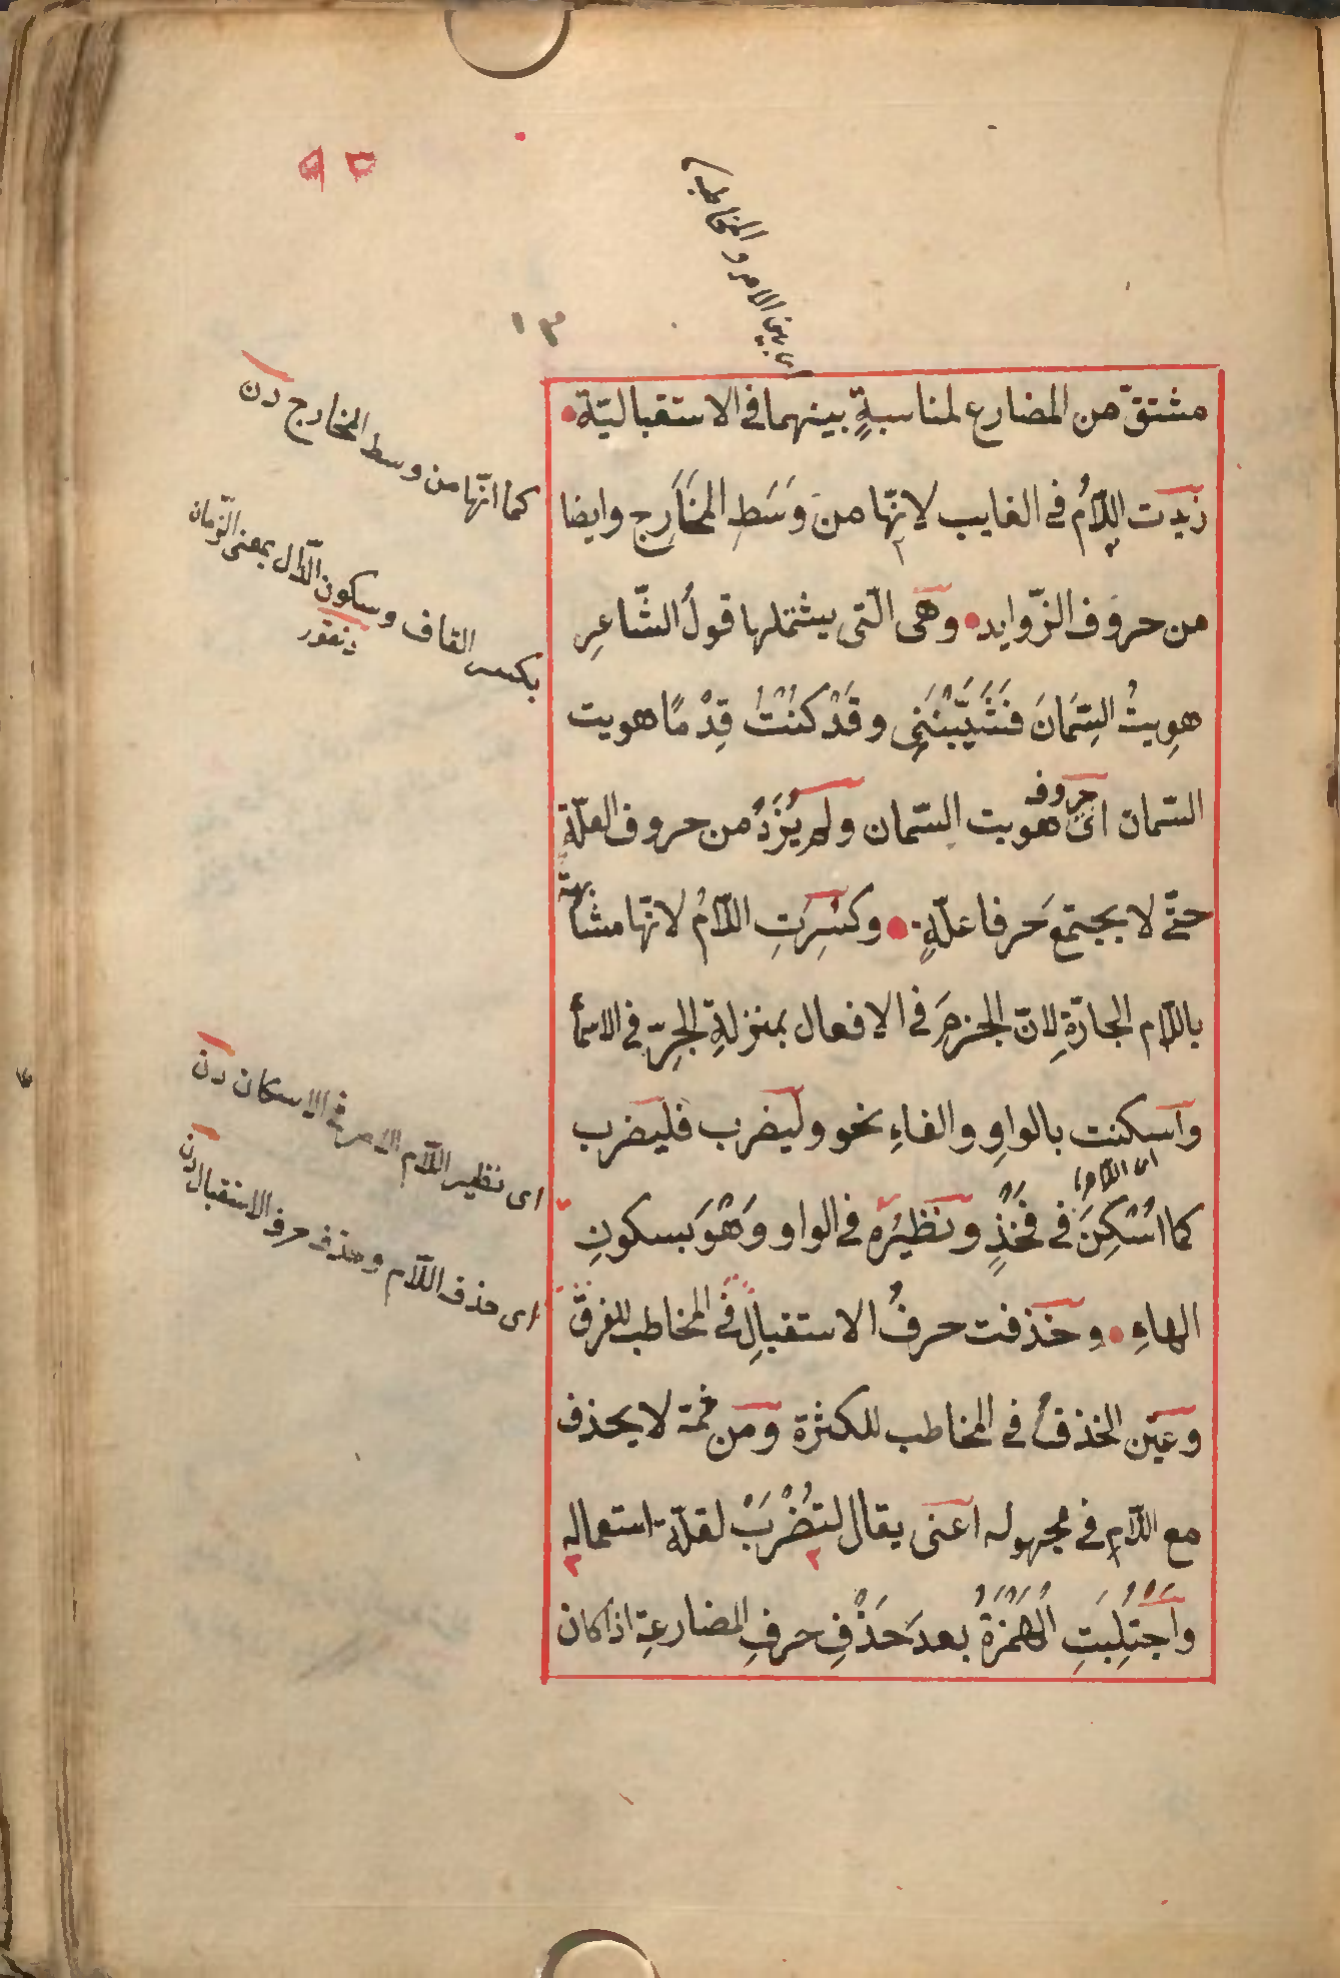 ٩٥
١٣
بين الامر والمخاطب
مشتقّ من المضارع لمناسبةٍ بينهما فى الاستقباليّة
زيدت اللّامُ فى الغايب لانّها من وَسَطِ المخَارِج وايضا
من حروف الزّوايد وهى الّتى يشتملها قولُ الشّاعِرِ
هوِيتُ السِّمَانَ فَشَيَّبْنَنِى وقَدْ كنْتُ قِدْمًا هويت
السّمان اى حروف هويت السّمان ولم يُزَدْ من حروف العلّة
حتّى لا يجتمعَ حرفا علّةٍ وكسِرَتِ اللّامُ لانّها مشابهة
باللّام الجارّةِ لانّ الجزمَ فى الافعال بمنزلةِ الجرِّ فى الاسمأ
واسكنت بالواوِ والفاءِ نحو وليضرب فليضرب
اى اللام
كما اسْكِنَ فى فخْذٍ ونظيرُه فى الواو وَهْوَ بسكونِ
الهاءِ وحذفت حرفُ الاستقبالِ فى المخاطب للفرق
وعيّن الحذفُ فى المخاطب للكثرة ومن ثمة لا يحذف
مع اللّامِ فى مجهوله اعنى يقال لتُضْرَبْ لقلّة استعماله
واجْتُلِبَتِ الْهَمْزَةُ بعدَ حَذْفِ حرفِ المضارعةِ اذا كان
كما انّها من وسط المخارج دن
بكسر القاف وسكون الدّال بمعنى الزّمان
دنقور
اى نظير اللّام الامر فى الاسكان دن
اى حذف اللّام وحذف حرف الاستقبال دن